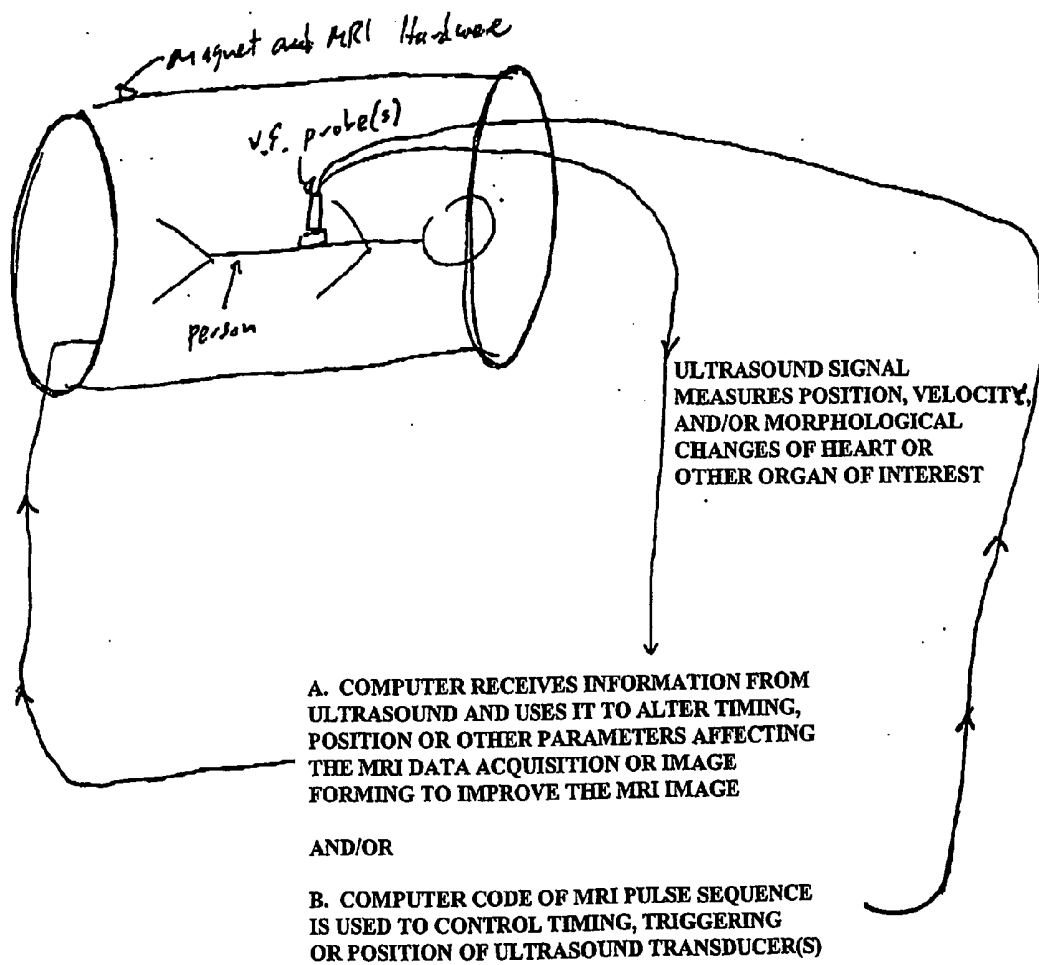 Magnet and MRI Hardware
v.s. probe(s)
person
ULTRASOUND SIGNAL
MEASURES POSITION, VELOCITY,
AND/OR MORPHOLOGICAL
CHANGES OF HEART OR
OTHER ORGAN OF INTEREST
A. COMPUTER RECEIVES INFORMATION FROM
ULTRASOUND AND USES IT TO ALTER TIMING,
POSITION OR OTHER PARAMETERS AFFECTING
THE MRI DATA ACQUISITION OR IMAGE
FORMING TO IMPROVE THE MRI IMAGE
AND/OR
B. COMPUTER CODE OF MRI PULSE SEQUENCE
IS USED TO CONTROL TIMING, TRIGGERING
OR POSITION OF ULTRASOUND TRANSDUCER(S)